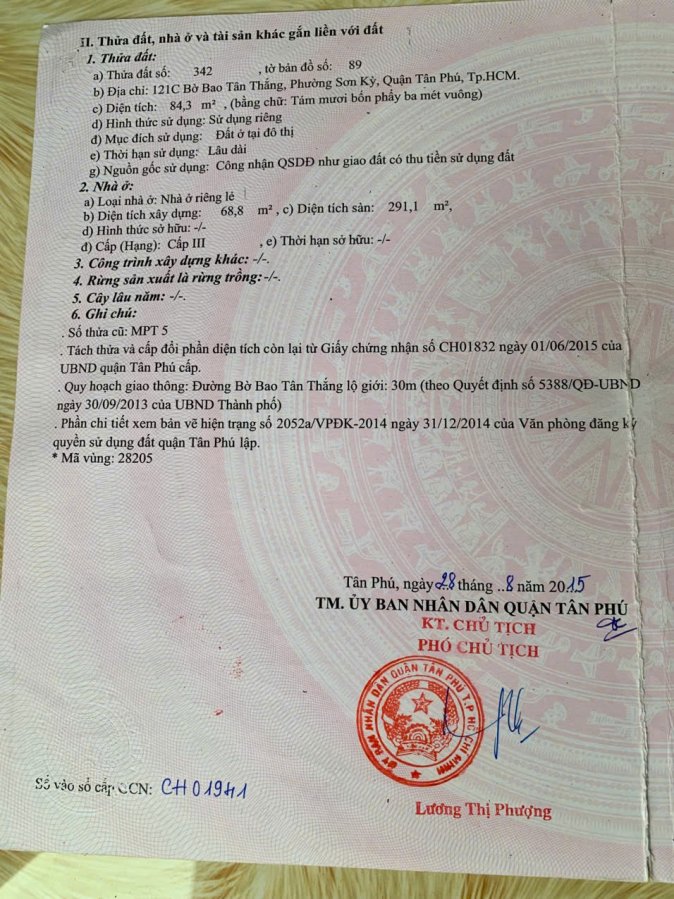 II. Thửa đất, nhà ở và tài sản khác gắn liền với đất
1. Thửa đất:
a) Thửa đất số: 342 , tờ bản đồ số: 89
b) Địa chỉ: 121C Bờ Bao Tân Thắng, Phường Sơn Kỳ, Quận Tân Phú, Tp.HCM.
c) Diện tích: 84,3 m² , (bằng chữ: Tám mươi bốn phẩy ba mét vuông)
d) Hình thức sử dụng: Sử dụng riêng
đ) Mục đích sử dụng: Đất ở tại đô thị
e) Thời hạn sử dụng: Lâu dài
g) Nguồn gốc sử dụng: Công nhận QSDĐ như giao đất có thu tiền sử dụng đất
2. Nhà ở:
a) Loại nhà ở: Nhà ở riêng lẻ
b) Diện tích xây dựng: 68,8 m² , c) Diện tích sàn: 291,1 m²,
d) Hình thức sở hữu: -/-
đ) Cấp (Hạng): Cấp III , e) Thời hạn sở hữu: -/-
3. Công trình xây dựng khác: -/-.
4. Rừng sản xuất là rừng trồng: -/-.
5. Cây lâu năm: -/-.
6. Ghi chú:
. Số thửa cũ: MPT 5
. Tách thửa và cấp đổi phần diện tích còn lại từ Giấy chứng nhận số CH01832 ngày 01/06/2015 của
UBND quận Tân Phú cấp.
. Quy hoạch giao thông: Đường Bờ Bao Tân Thắng lộ giới: 30m (theo Quyết định số 5388/QĐ-UBND
ngày 30/09/2013 của UBND Thành phố)
. Phần chi tiết xem bản vẽ hiện trạng số 2052a/VPĐK-2014 ngày 31/12/2014 của Văn phòng đăng ký
quyền sử dụng đất quận Tân Phú lập.
* Mã vùng: 28205
Tân Phú, ngày 28 tháng ..8 năm 2015
TM. ỦY BAN NHÂN DÂN QUẬN TÂN PHÚ
KT. CHỦ TỊCH
PHÓ CHỦ TỊCH
ỦY BAN NHÂN DÂN QUẬN TÂN PHÚ T.P HỒ CHÍ MINH
Số vào sổ cấp GCN: CH01941
Lương Thị Phượng